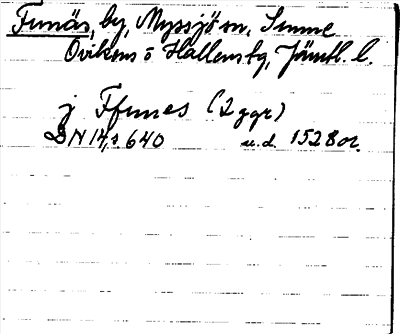 Funäs, by, Myssjö sn, Sunne
Ovikens o Hallens tg, Jämtl. l.
j Ffunes (2 ggr)
DN 14, s 640 u.d. 1528 or.